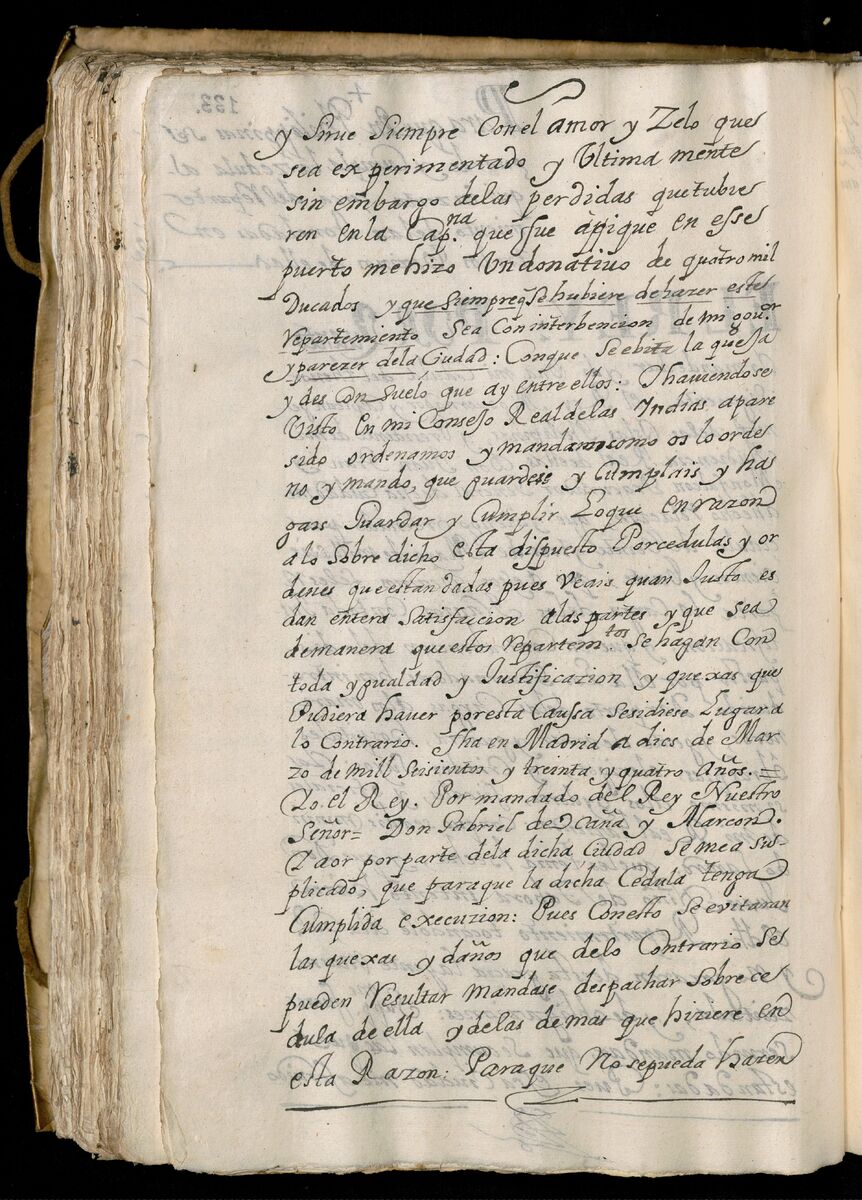 y Sirue Siempre Con el amor y Zelo que
sea experimentado y Ultima mente
sin embargo de las perdidas que tubie
ren en la Cap.na que fue àpique en esse
puerto me hizo Un donatiuo de quatro mil
Ducados y que siempre q̃ Se hubiere de hazer este
repartemiento Sea Con interbencion de mi gou.or
y parezer de la Ciudad: Conque Se ebita la quexa
y des Con suelo que ay entre ellos: Y haviendose
Visto en mi Consejo Real de las Indias, a pare
sido ordenamos y mandamos como os lo orde
no y mando, que guardeis y Cumplais y ha
gais Guardar y Cumplir Lo que en razon
a lo Sobre dicho esta dispuesto Por cedulas y or
denes que estan dadas pues Veais quan Justo es
dan entera Satisfaccion a las partes y que sea
de manera que estos repartem.tos Se hagan Con
toda ygualdad y Justificazion y quexas que
Pudiera haver por esta Caussa Se sidiese Lugar a
lo Contrario. Fha en Madrid a dies de Mar
zo de mill Seisientos y treinta y quatro Años. =
Yo el Rey. Por mandado del Rey Nuestro
Señor = Don Gabriel de Ocaña y Alarcon.
Y aor por parte de la dicha Ciudad Se me a su
plicado, que para que la dicha Cedula tenga
Cumplida execuzion: Pues Con esto Se evitaran
las quexas y daños que de lo Contrario Se
pueden resultar mandase despachar Sobre ce
dula de ella y de las demas que hiziere en
esta Razon: Para que No se pueda hazer